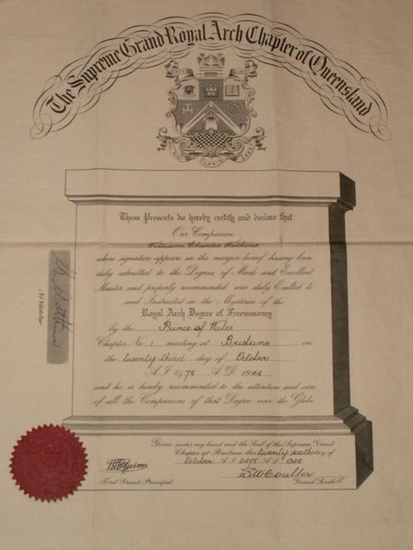 The Supreme Grand Royal Arch Chapter of Queensland
These Presents do hereby certify and declare that
Our Companion
William Charles
whose signature appears in the margin hereof having been
duly admitted to the Degrees of Mark and Excellent
Master and properly recommended was duly Exalted to
and Instructed in the Mysteries of the
Royal Arch Degree of Freemasonry
by the Prince of Wales
Chapter No. 1 meeting at Brisbane on
the twenty third day of October
A.I. 2478 A.D. 1948
and he is hereby recommended to the attention and care
of all the Companions of that Degree over the Globe
Ne Varietur
Given under my hand and the Seal of the Supreme Grand
Chapter at Brisbane this day of
October A.I. 2478 A.D. 1948
First Grand Principal
Grand Scribe E.